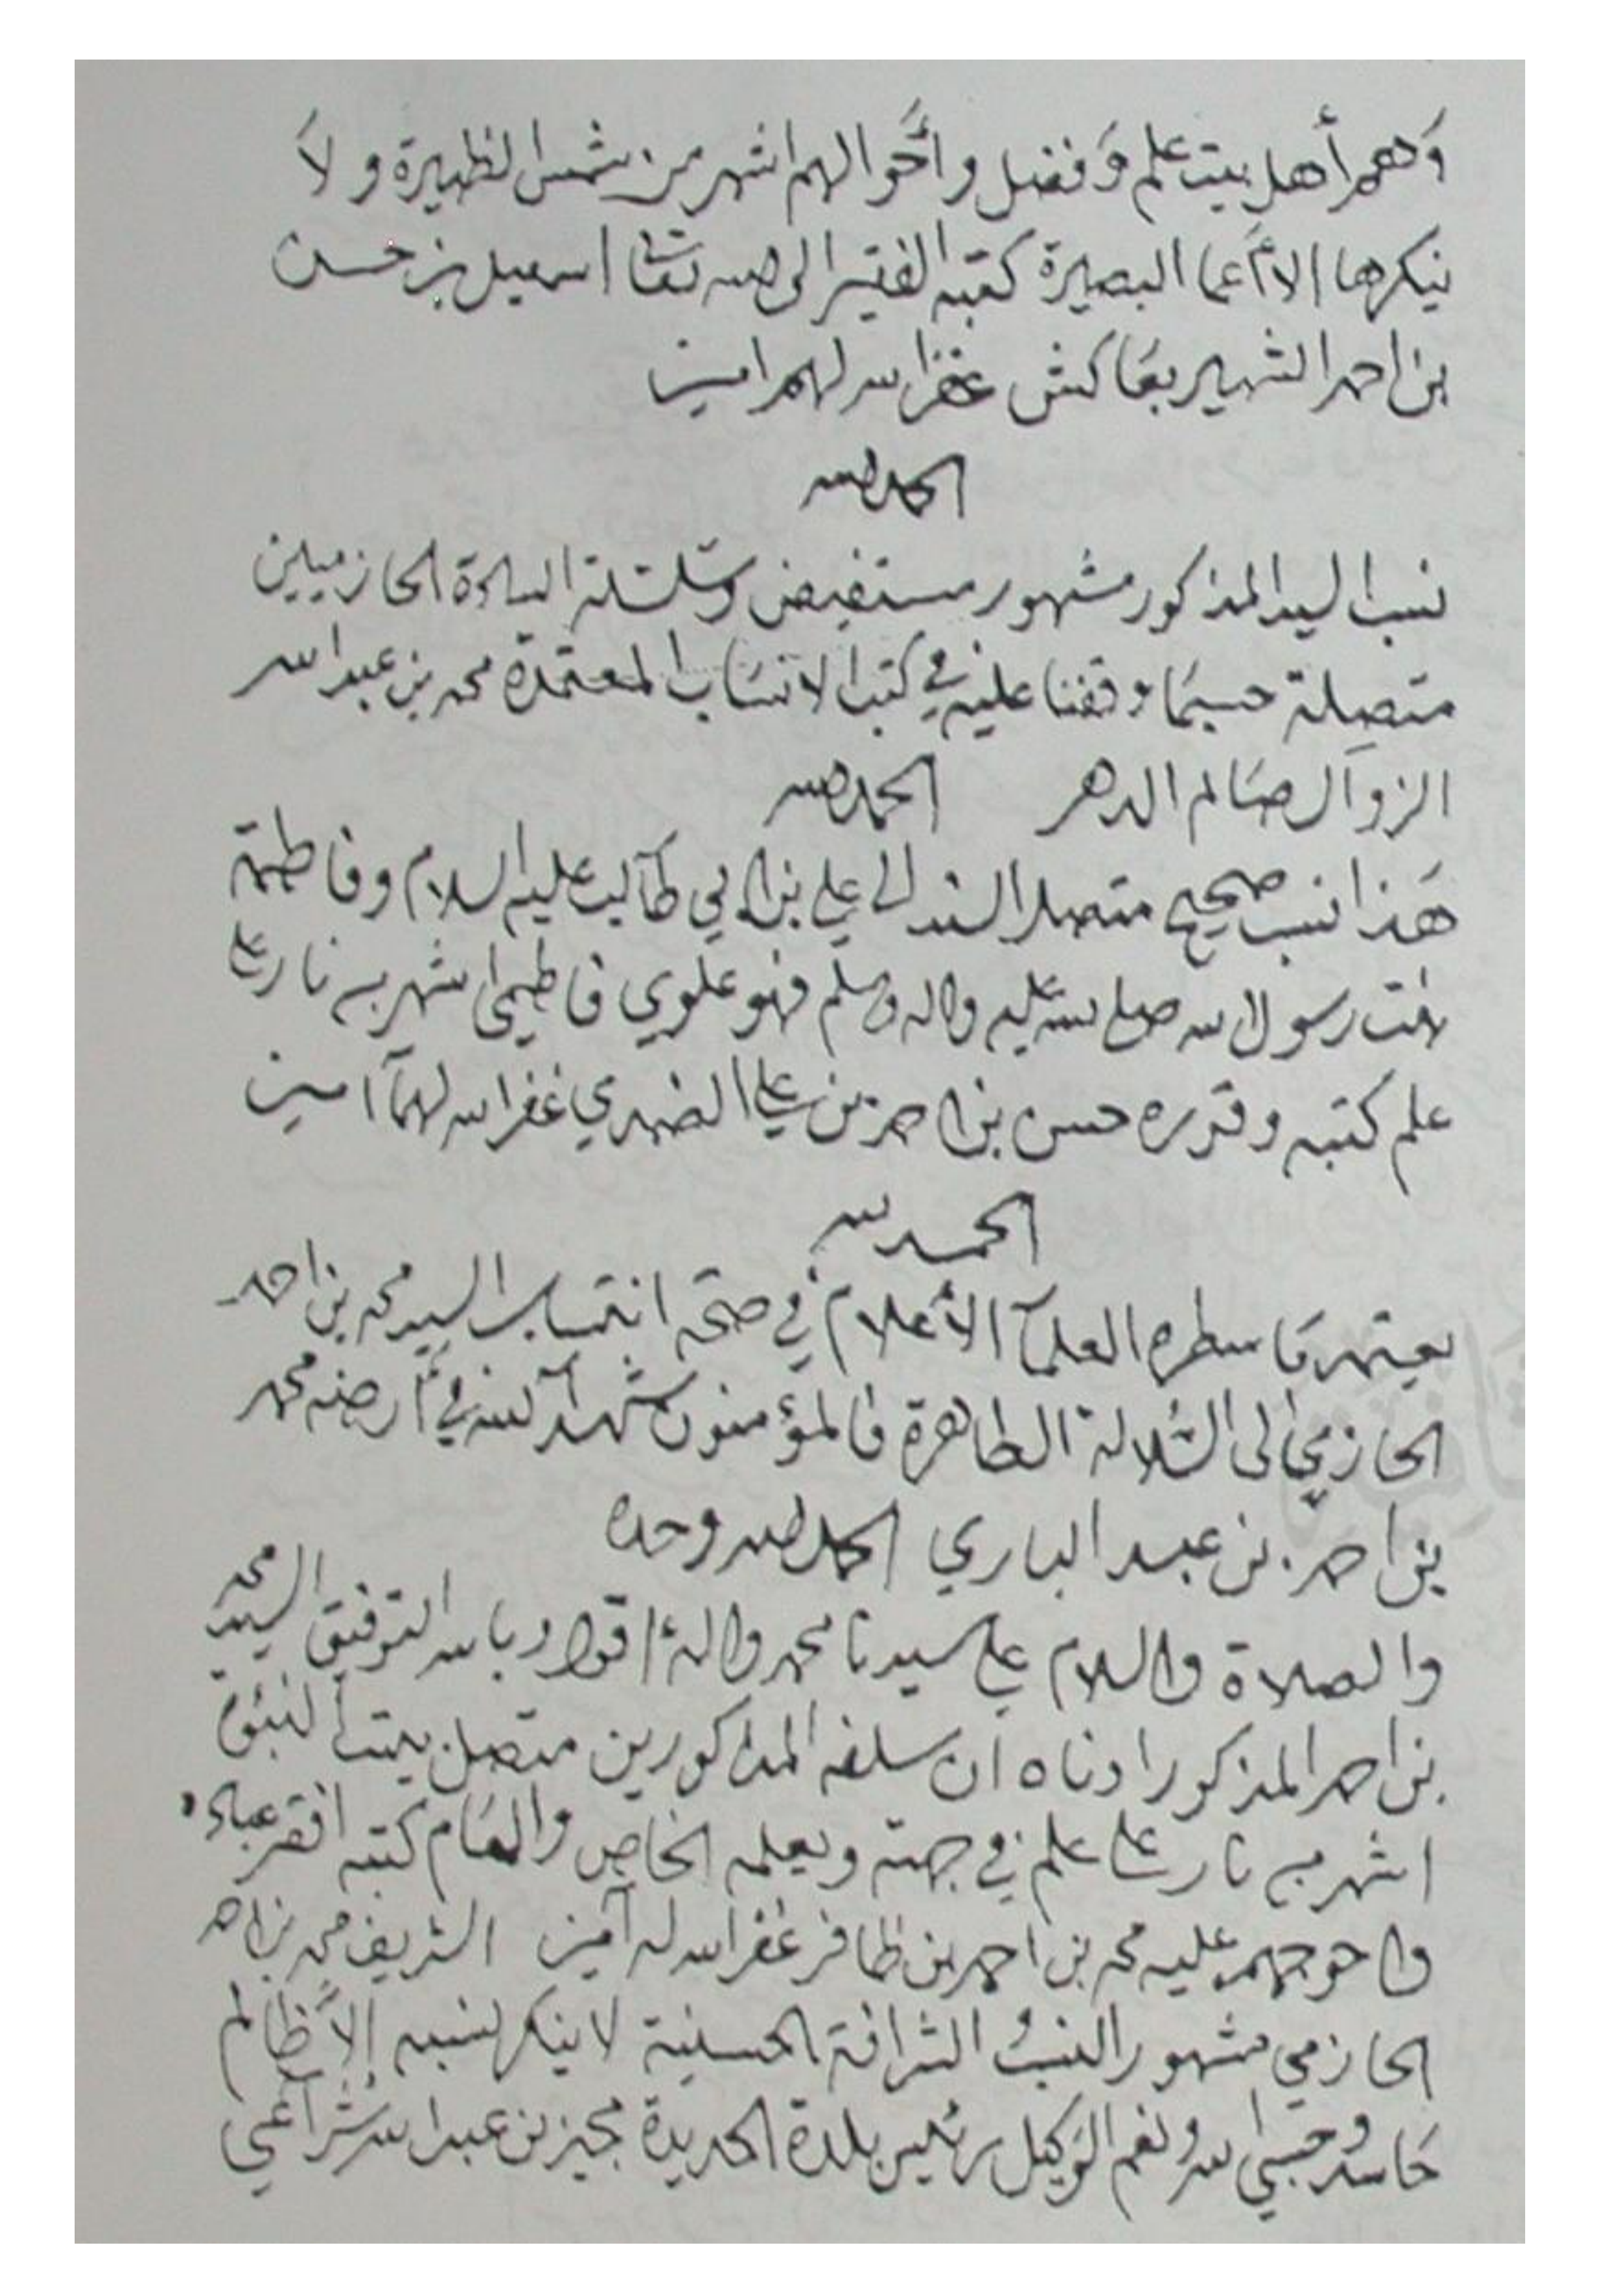 وَهم أهل بيت علم وَفضل وأحَوالهم اشهر من شمس الظهيرة ولاَ
ينكرها الا أعما البصيرة كتبه الفقير الى الله تعَا اسمعيل بن حسن
بن احمد الشهير بعَاكش غفر الله لهم امين
الحمد لله
نسب السيد المذكور مشهور مستفيض وسلسلة السادة الحازميين
متصِلة حسبمَا وقفنا عليه في كتب الانسَاب المعتمدة محمد بن عبد الله
الزواك صَالم الدهر الحمد لله
هَذا نسب صحيح متصل السند الى علي بن ابي طَالب عليه السلام وفاطمة
بنت رسول الله صلى الله عليه واله وسلم فهو علوي فاطمي اشهر به نار على
علم كتبه وقرره حسن بن احمد بن علي الضمدي غفر الله لهمَا امين
الحمد لله
يعتمد مَا سطره العلمآ الأعلام في صحة انتسَاب السيد محمد بن احمد
الحازمي الى السُلالة الطاهرة فالمؤمنون شهدآ لله في أرضه محمد
بن احمد بن عبد الباري الحمد لله وحده
والصلاة والسلام على سيدنا محمد واله اقول وبالله التوفيق السيد محمد
بن احمد المذكور ادناه ان سلفه المذكورين متصل ببيت النبوة
اشهر من نار على علم في جهته ويعلمه الخاص والعَام كتبه افقر عباده
واحوجهم عليه محمد بن احمد بن ظافر غفر الله له آمين الشريف محمد بن احمد
الحازمي مشهور النسبُ الشرافة الحسينية لا ينكر لنسبه إلاَّ ظالم
حَاسد وحسبي الله ونعم الوَكيل رئيس بلدة الحديدة مجيز بن عبد الله شراعي